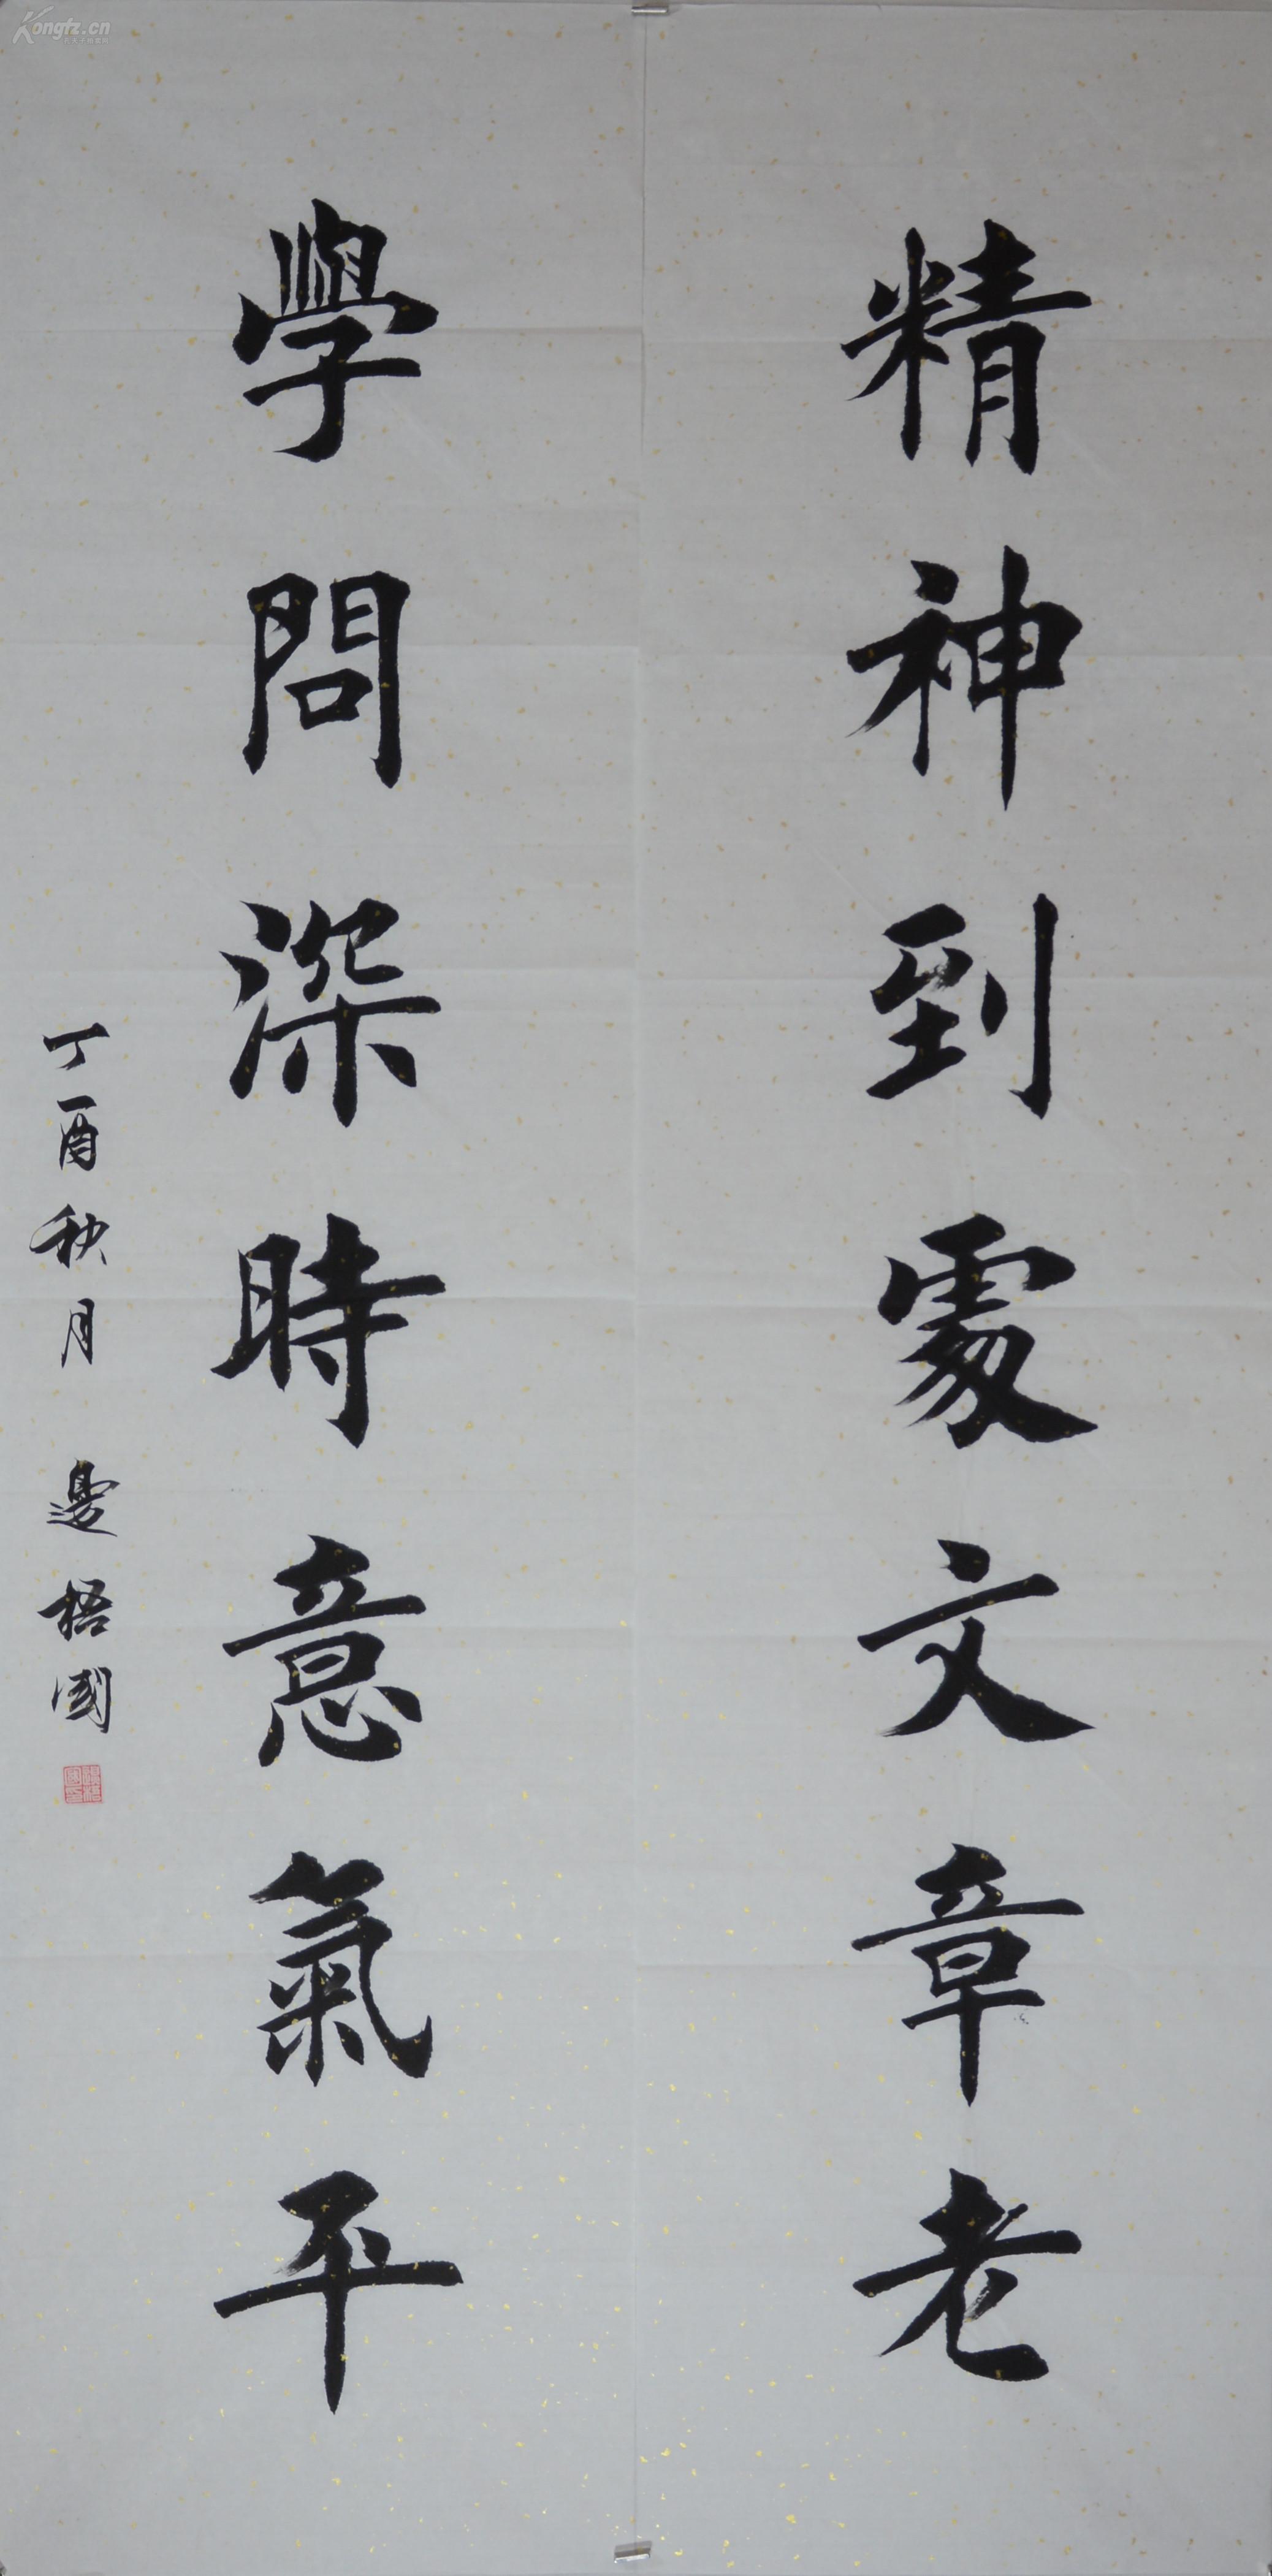 精神到處文章老
學問深時意氣平
丁酉秋月 邊梧國
Kongfz.cn